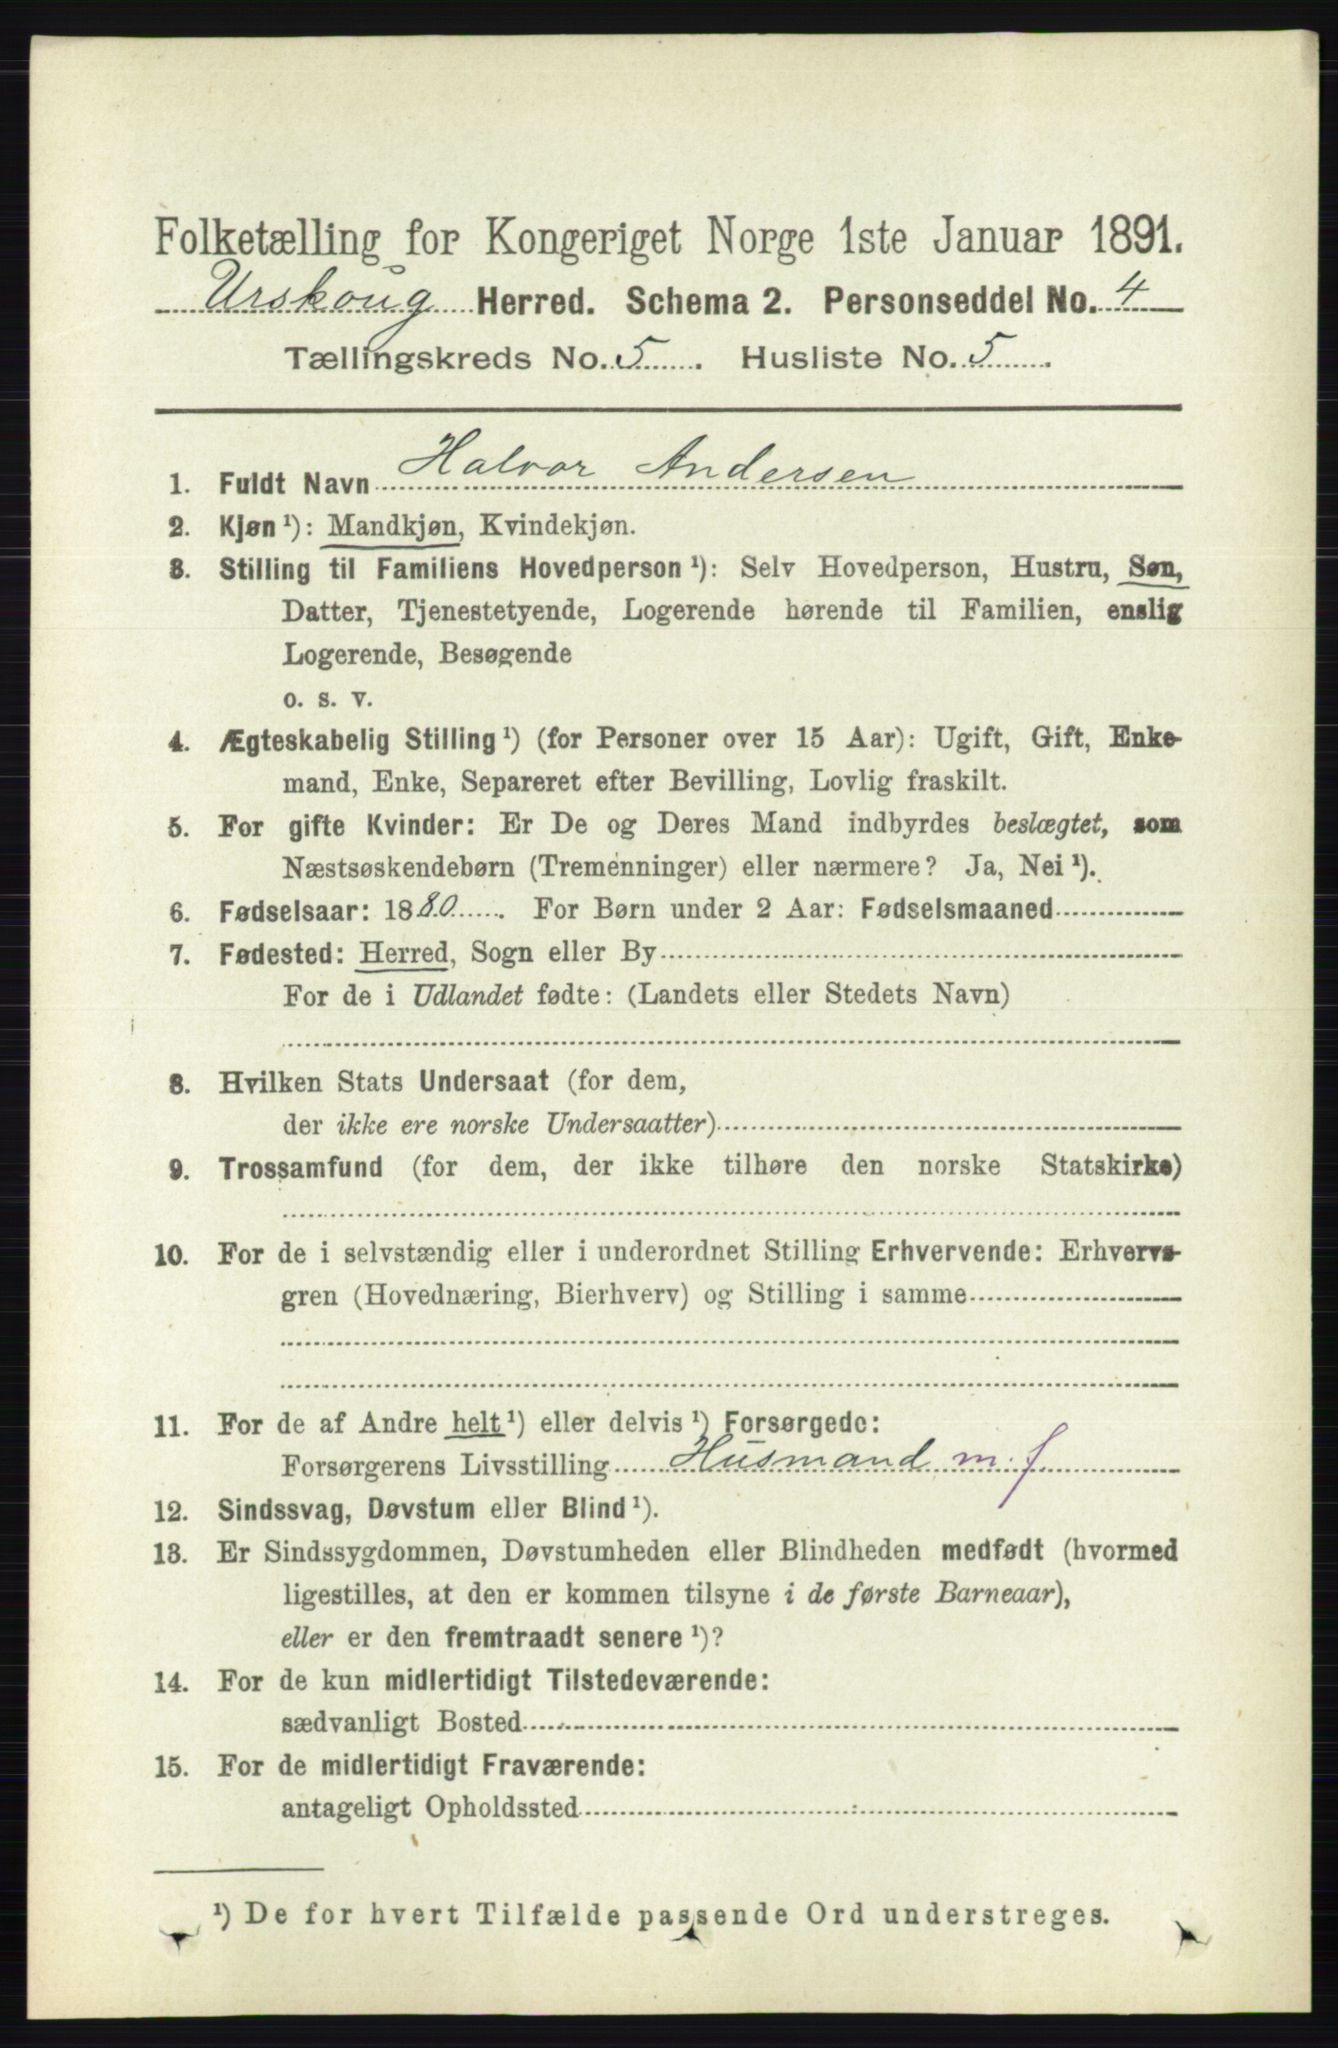 Folketælling for Kongeriget Norge 1ste Januar 1891.
Urskoug Herred. Schema 2. Personseddel No. 4
Tællingskreds No. 5. Husliste No. 5.
1. Fuldt Navn Halvor Andersen
2. Kjøn ¹): Mandkjøn, Kvindekjøn.
3. Stilling til Familiens Hovedperson ¹): Selv Hovedperson, Hustru, Søn,
Datter, Tjenestetyende, Logerende hørende til Familien, enslig
Logerende, Besøgende
o. s. v.
4. Ægteskabelig Stilling ¹) (for Personer over 15 Aar): Ugift, Gift, Enke-
mand, Enke, Separeret efter Bevilling, Lovlig fraskilt.
5. For gifte Kvinder: Er De og Deres Mand indbyrdes beslægtet, som
Næstsøskendebørn (Tremenninger) eller nærmere? Ja, Nei ¹).
6. Fødselsaar: 1880. For Børn under 2 Aar: Fødselsmaaned
7. Fødested: Herred, Sogn eller By
For de i Udlandet fødte: (Landets eller Stedets Navn)
8. Hvilken Stats Undersaat (for dem,
der ikke ere norske Undersaatter)
9. Trossamfund (for dem, der ikke tilhøre den norske Statskirke)
10. For de i selvstændig eller i underordnet Stilling Erhvervende: Erhvervs-
gren (Hovednæring, Bierhverv) og Stilling i samme
11. For de af Andre helt ¹) eller delvis ¹) Forsørgede:
Forsørgerens Livsstilling Husmand m. j.
12. Sindssvag, Døvstum eller Blind ¹).
13. Er Sindssygdommen, Døvstumheden eller Blindheden medfødt (hvormed
ligestilles, at den er kommen tilsyne i de første Barneaar),
eller er den fremtraadt senere ¹)?
14. For de kun midlertidigt Tilstedeværende:
sædvanligt Bosted
15. For de midlertidigt Fraværende:
antageligt Opholdssted
¹) De for hvert Tilfælde passende Ord understreges.